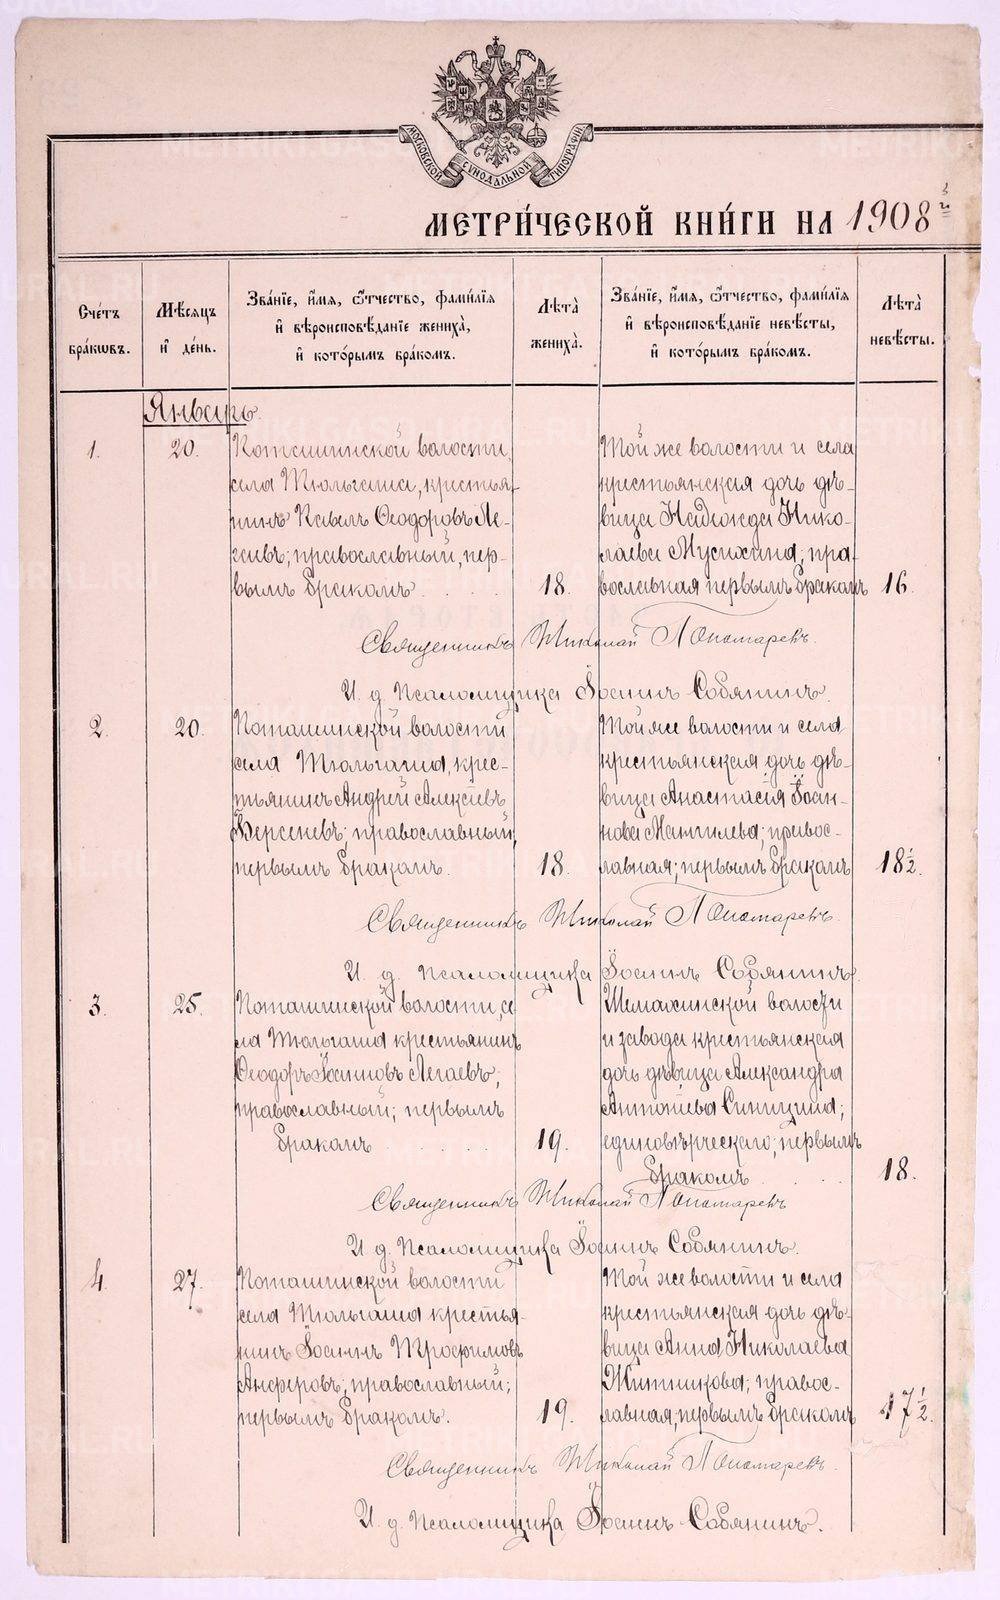 МОСКОВСКОЙ СѴНОДАЛЬНОЙ ТИПОГРАФІИ
МЕТРИ́ЧЕСКОЙ КНИ́ГИ НА 1908
Сче́тъ бра́кѡвъ.
Мѣ́сѧцъ и҆ де́нь.
Зва́нїе, и҆́мѧ, ѻ҆́тчество, фами́лїѧ
и҆ вѣроисповѣ́данїе жениха̀,
и҆ кото́рымъ бра́комъ.
Лѣ́та жениха̀.
Зва́нїе, и҆́мѧ, ѻ҆́тчество, фами́лїѧ
и҆ вѣроисповѣ́данїе невѣ́сты,
и҆ кото́рымъ бра́комъ.
Лѣ́та невѣ́сты.
Январь.
1.
20.
Поташинской волости,
села Тюльгаша, крестья-
нинъ Павелъ Ѳеодоровъ Ле-
гаевъ; православный, пер-
вымъ бракомъ
18.
Той же волости и села
крестьянская дочь дѣ-
вица Надежда Нико-
лаева Мусихина; пра-
вославная первымъ бракомъ
16.
Священникъ Николай Пономаревъ.
И. д. Псаломщика Іоаннъ Собянинъ.
2.
20.
Поташинской волости
села Тюльгаша, крес-
тьянинъ Андрей Алексіевъ
Берсеневъ; православный;
первымъ бракомъ.
18.
Той же волости и села
крестьянская дочь дѣ-
вица Анастасія Іоан-
нова Мангилева; правос-
лавная; первымъ бракомъ
18 1/2.
Священникъ Николай Пономаревъ.
И. д. Псаломщика Іоаннъ Собянинъ.
3.
25.
Поташинской волости, се-
ла Тюльгаша крестьянинъ
Ѳеодоръ Іоанновъ Легаевъ;
православный; первымъ
бракомъ
19.
Шемахинской волости
и завода крестьянская
дочь дѣвица Александра
Антоніева Синицина;
единовѣрческаго; первымъ
бракомъ
18.
Священникъ Николай Пономаревъ
И. д. Псаломщика Іоаннъ Собянинъ.
4.
27.
Поташинской волости
села Тюльгаша крестья-
нинъ Іоаннъ Трофимовъ
Анферовъ; православный;
первымъ бракомъ.
19.
Той же волости и села
крестьянская дочь дѣ-
вица Анна Николаева
Житникова; правос-
лавная; первымъ бракомъ
17 1/2.
Священникъ Николай Пономаревъ.
И. д. Псаломщика Іоаннъ Собянинъ.